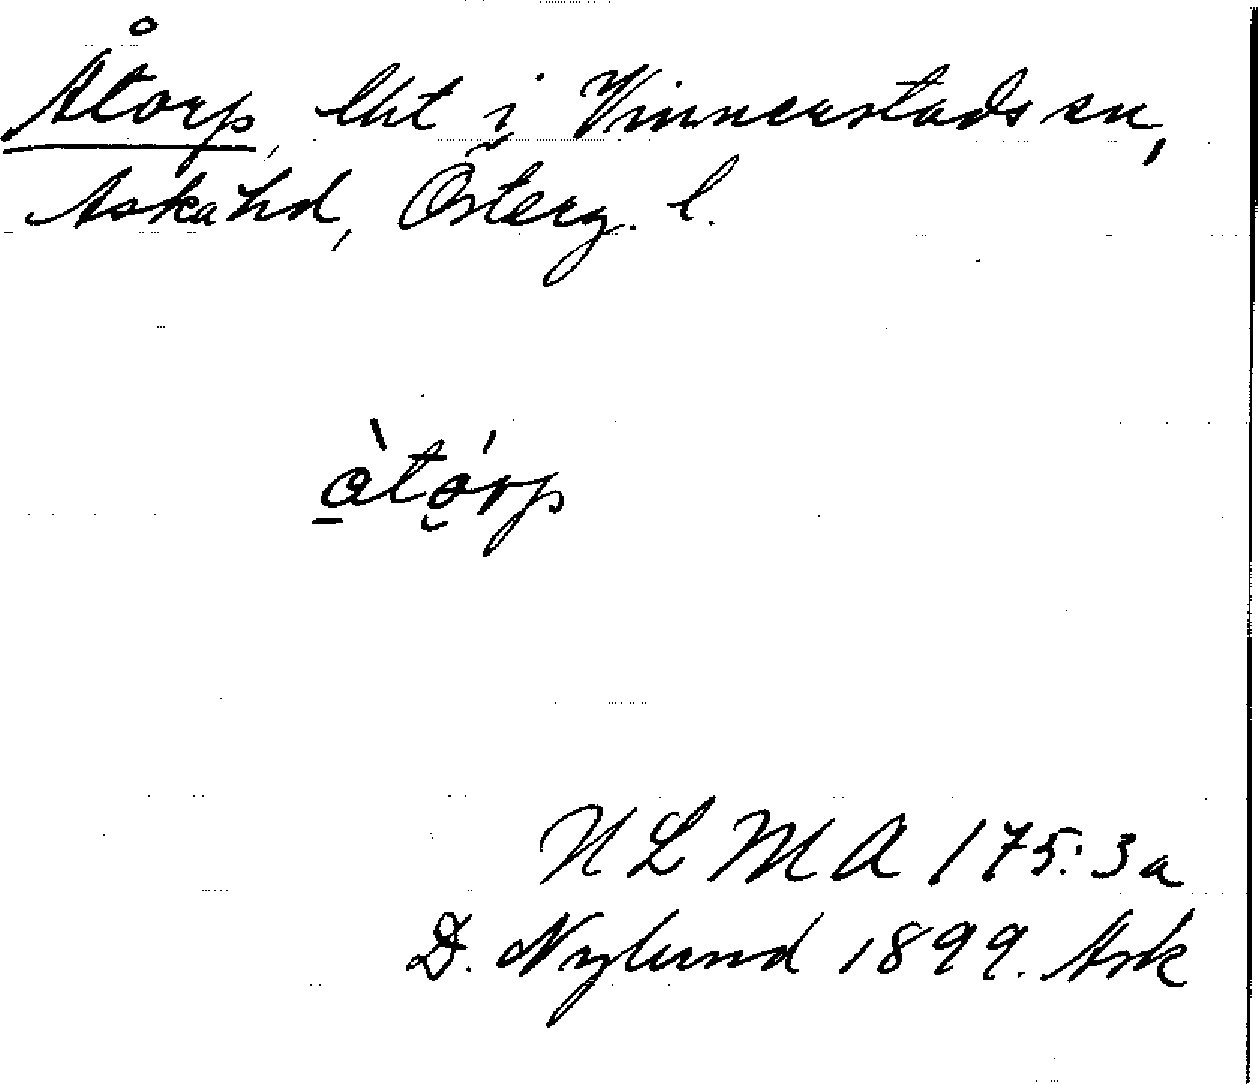 Åtorp, lht i Vinnerstads sn,
Aska hd, Österg. l.
å̱̀tǫ́rp
N L M A 175:3a
D. Nylund 1899. Ark